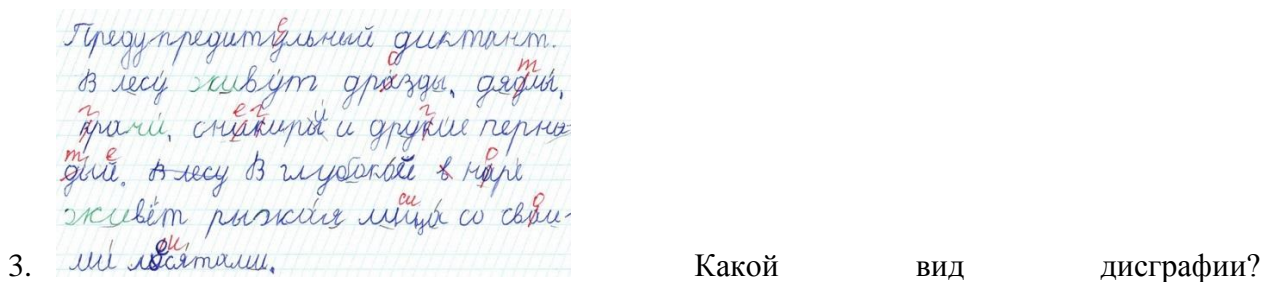 Предупредитульный диктант.
В лесу живут дразды, дядлы,
крачи, сникиры и друкие перна-
дый. В лесу В глубокой в наре
живёт рыжкая лица со сваи-
ми лисятами.
3. Какой вид дисграфии?